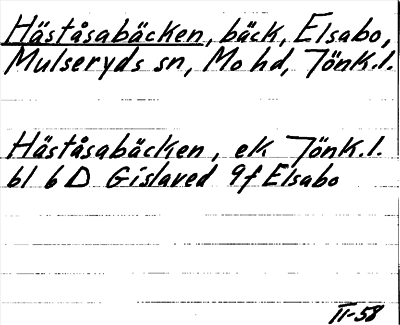 Häståsabäcken, bäck, Elsabo,
Mulseryds sn, Mo hd, Jönk.l.
Häståsabäcken, ek Jönk.l.
bl 6 D Gislaved 9f Elsabo
II-58